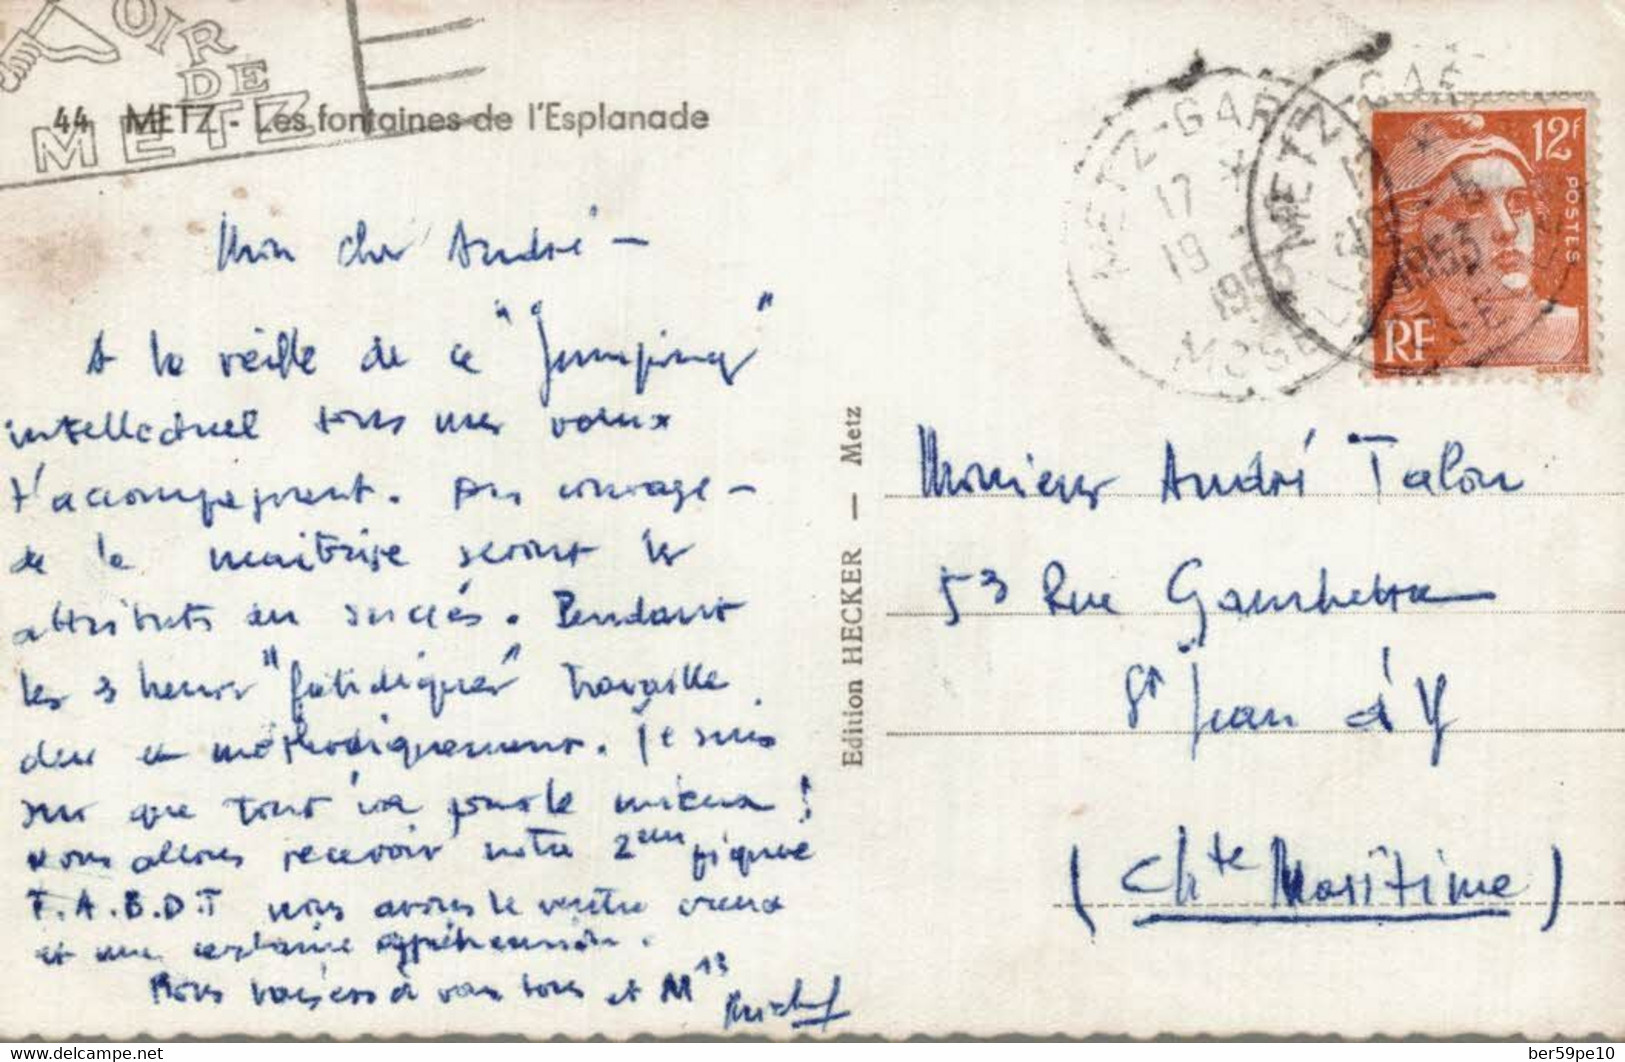 OIR
DE
METZ
44 METZ - Les fontaines de l'Esplanade
METZ-GARE
17 *
19 -
1953
MOSELLE
METZ-GARE
1953
MOSELLE
12F
POSTES
RF
Mon cher André -
A la veille de ce "Jumping"
intellectuel tous mes voeux
t'accompagnent. courage -
de la maitrise seront les
attributs du succés. Pendant
les 3 heures "fatidiques" travaille
dur et méthodiquement. Je suis
sur que tout ira pour le mieux !
Nous allons recevoir notre 2eme piqure
T.A.B.D.T nous avons le ventre creux
et une certaine appréhension.
Bons baisers à vous tous et
Michel
Edition HECKER — Metz
Monsieur André Talon
53 Rue Gambetta
St Jean d'Y
(Chte Maritime)
delcampe.net
ber59pe10